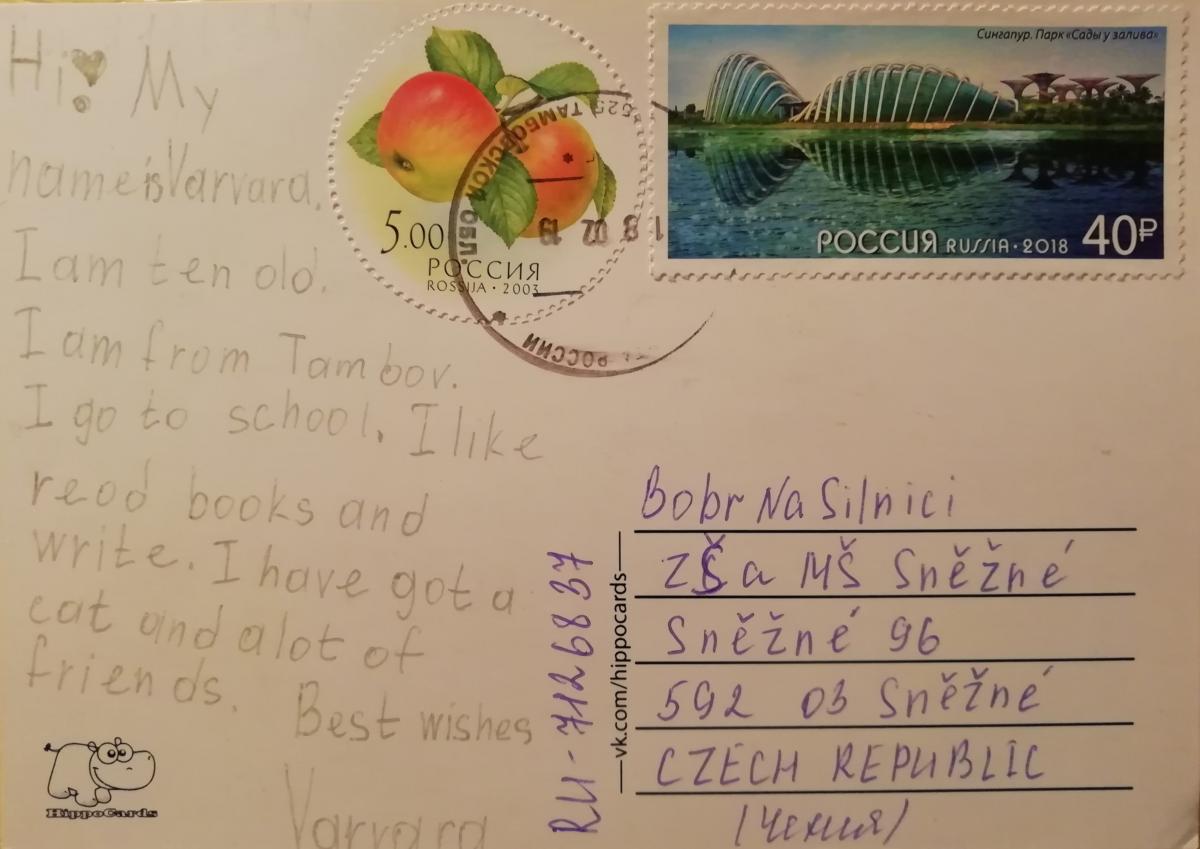 Hi! My
name is Varvara.
I am ten old.
I am from Tambov.
I go to school. I like
read books and
write. I have got a
cat and a lot of
friends.
Best wishes
Varvara
HippoCards
5.00
РОССИЯ
ROSSIJA · 2003
ТАМБОВСКОЙ ОБЛ.
18 02 19
РОССИИ
Сингапур. Парк «Сады у залива»
РОССИЯ RUSSIA · 2018 40₽
RU-7126837
vk.com/hippocards
Bobr Na Silnici
ZŠ a MŠ Sněžné
Sněžné 96
592 03 Sněžné
CZECH REPUBLIC
(Чехия)